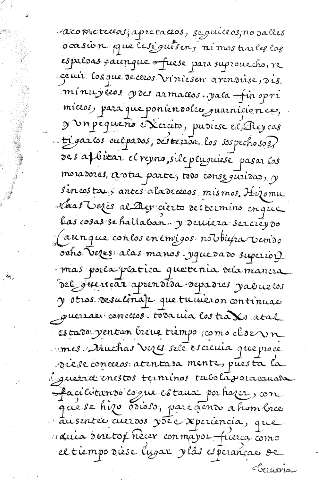 acometellos, apretallos, seguillos, no dalles
ocasion, que le siguiesen, ni mostralles las
espaldas aunque fuese para su provecho, re
ceuir los que dellos viniesen a rendirse, dis
minuyllos y desarmallos. y a la fin opri
millos, para que poniendoles guarniciones,
y un pequeño exercito, pudiese el Rey cas
tigar los culpados, desterrar los sospechosos,
deshabitar el reyno, si le pluguiese pasar los
moradores, a otra parte, todo con seguridad, y
sin costa, antes a la dellos mismos. Hizo mu
chas vezes al Rey cierto del termino en que
las cosas se hallaban. y
aunque con los enemigos no hubiera venido
ocho vezes a las manos. y quedado superior
mas por la platica que tenia de la manera
del guerrear aprendida de padres y abuelos
y otros de su linaje que tuuieron continuas
guerras con
estado y en tan breve tiempo, como el de un
mes. Muchas vezes se le escriuia que proce
diese con ellos atentada mente, puesta la
guerra en estos terminos
facilitando lo que estaua por hazer, con
que se hizo odioso, pareciendo a hombres
ausentes cuerdos y de experiencia, que
avia de retorñecer con mayor fuerza como
el tiempo diese lugar y las esperanças de
Berueria